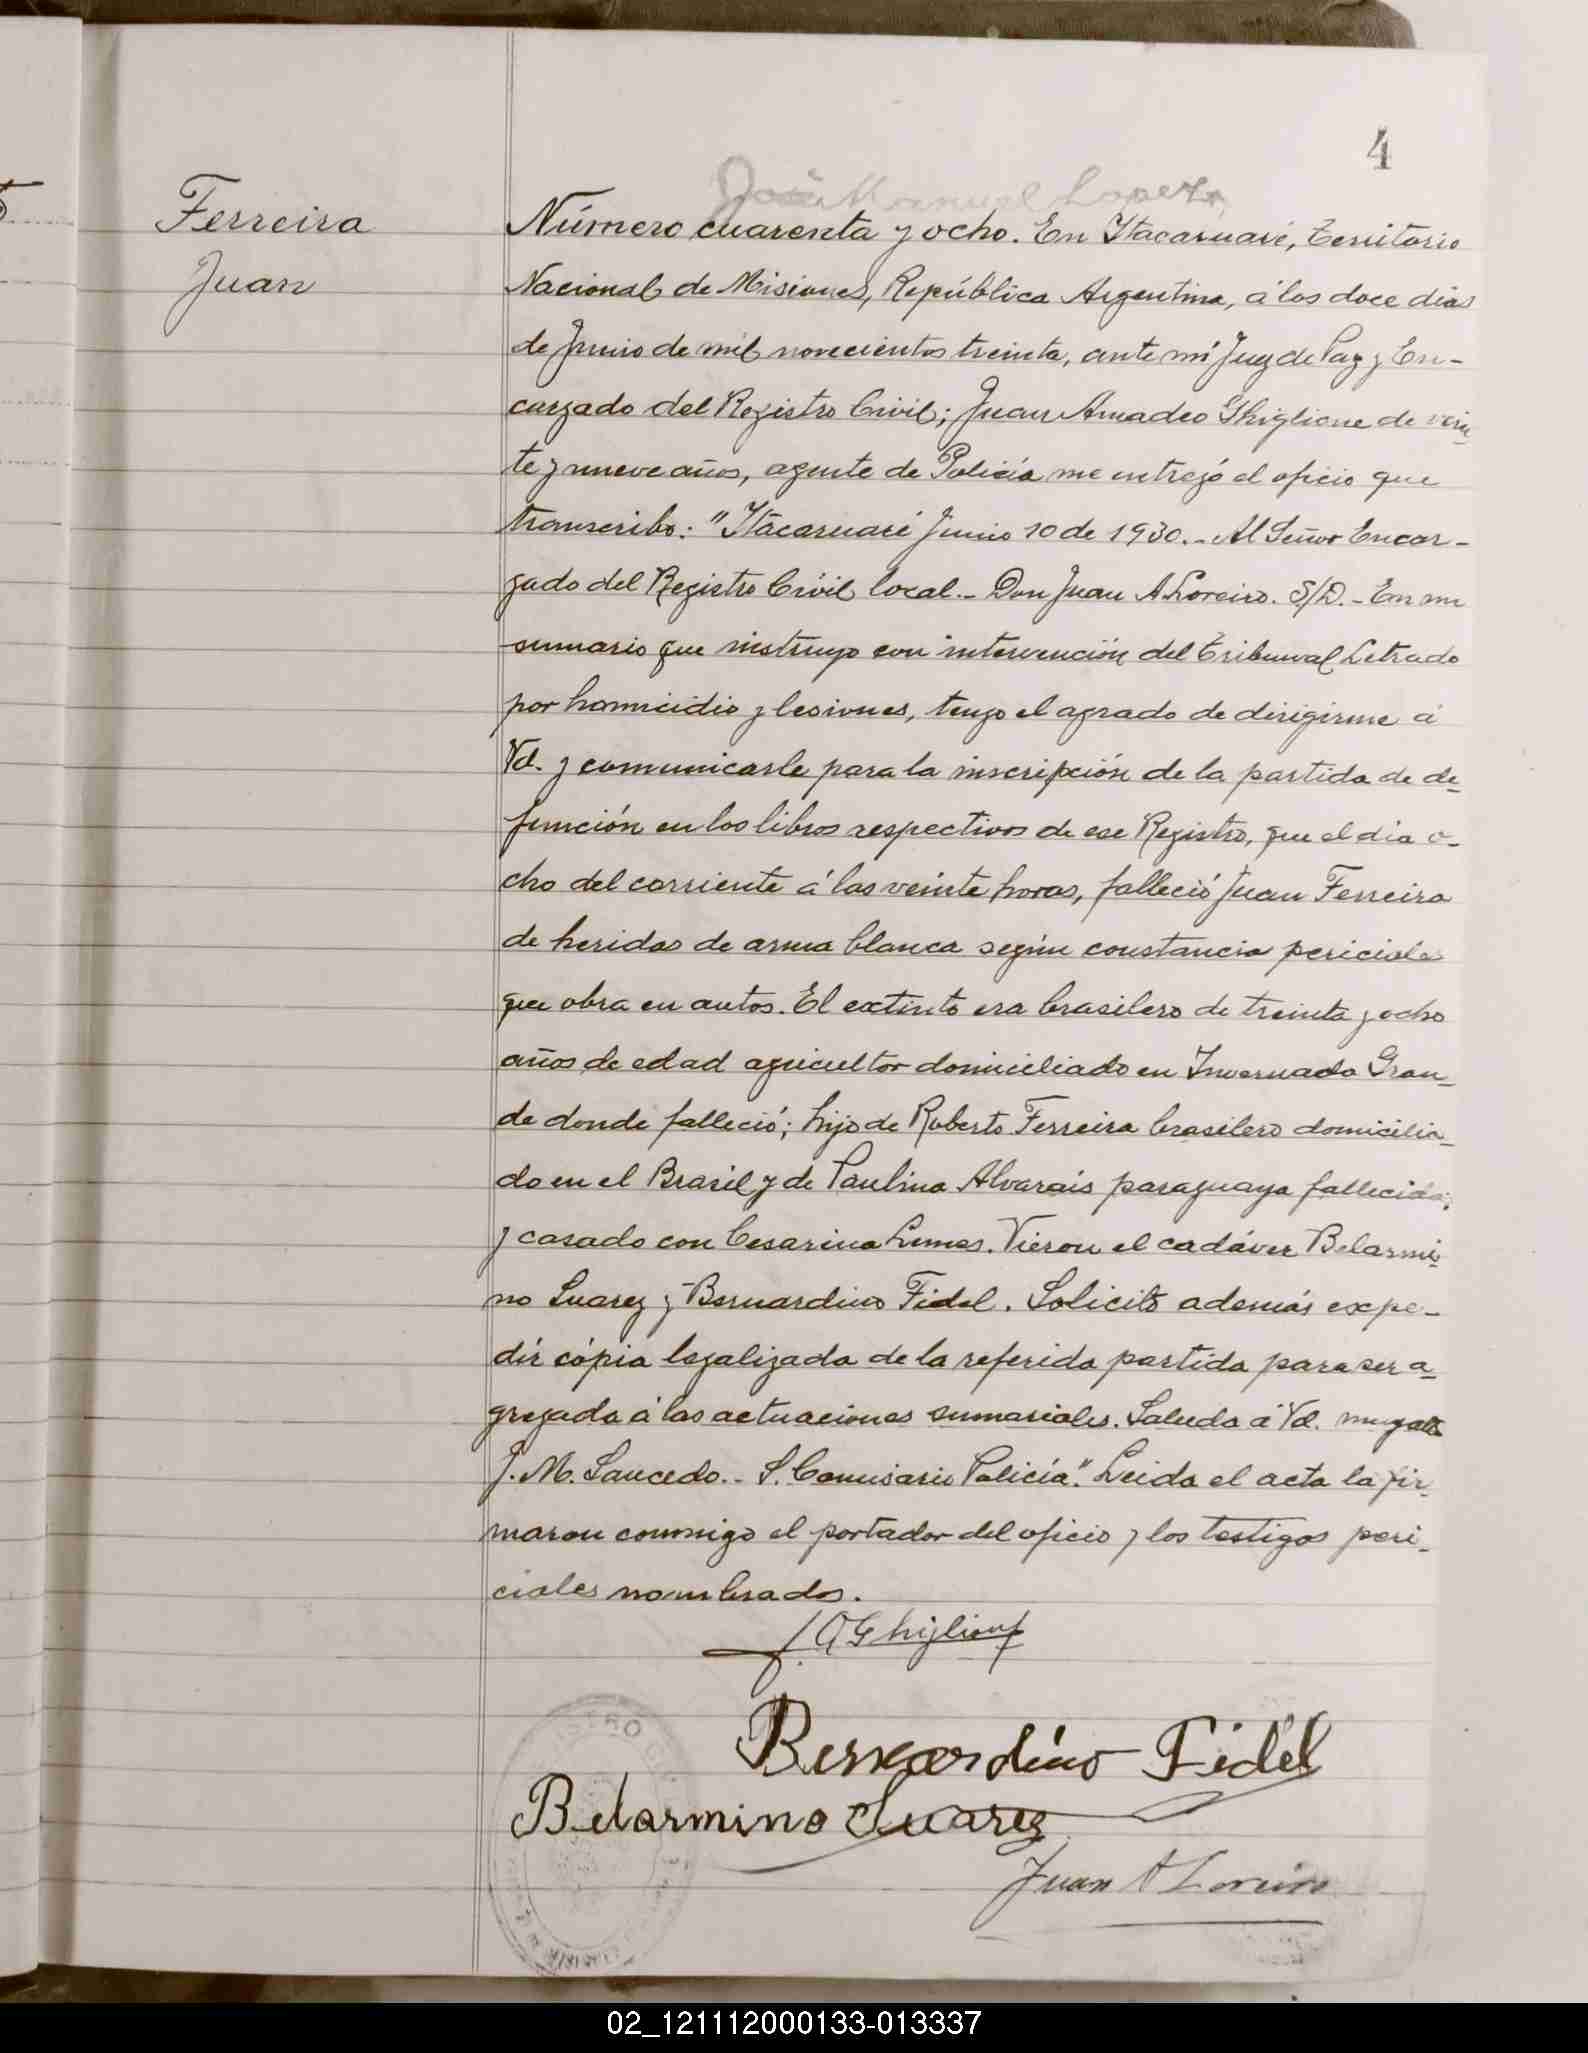 4
José Manuel Lopez
Ferreira
Juan
Número cuarenta y ocho. En Itacaruaré, Territorio
Nacional de Misiones, República Argentina, á los doce dias
de Junio de mil novecientos treinta, ante mí Juez de Paz y En-
cargado del Registro Civil; Juan Amadeo Ghiglione de vein
te y nueve años, agente de Policía me entregó el oficio que
transcribo: "Itacaruaré Junio 10 de 1930.- Al Señor Encar-
gado del Registro Civil local.- Don Juan A Loreiro. S/D.- En un
sumario que instruyo con intervención del Tribunal Letrado
por homicidio y lesiones, tengo el agrado de dirigirme á
Vd. y comunicarle para la inscripción de la partida de de-
función en los libros respectivos de ese Registro, que el dia o-
cho del corriente á las veinte horas, falleció Juan Ferreira
de heridas de arma blanca según constancia periciales
que obra en autos. El extinto era brasilero de treinta y ocho
años de edad agricultor domiciliado en Invernada Gran-
de donde falleció; hijo de Roberto Ferreira brasilero domicilia-
do en el Brasil y de Paulina Alvarais paraguaya fallecida;
y casado con Cesarina Lemes. Vieron el cadáver Belarmi-
no Suarez y Bernardino Fidel. Solicito además expe-
dir cópia legalizada de la referida partida para ser a-
gregada á las actuaciones sumariales. Saluda á Vd. muy atto
J. M. Saucedo.- S. Comisario Policía". Leida el acta la fir-
maron conmigo el portador del oficio y los testigos peri-
ciales nombrados.
J. A Ghiglione
Bernardino Fidel
Belarmino Suarez
Juan A Loreiro
02_121112000133-013337